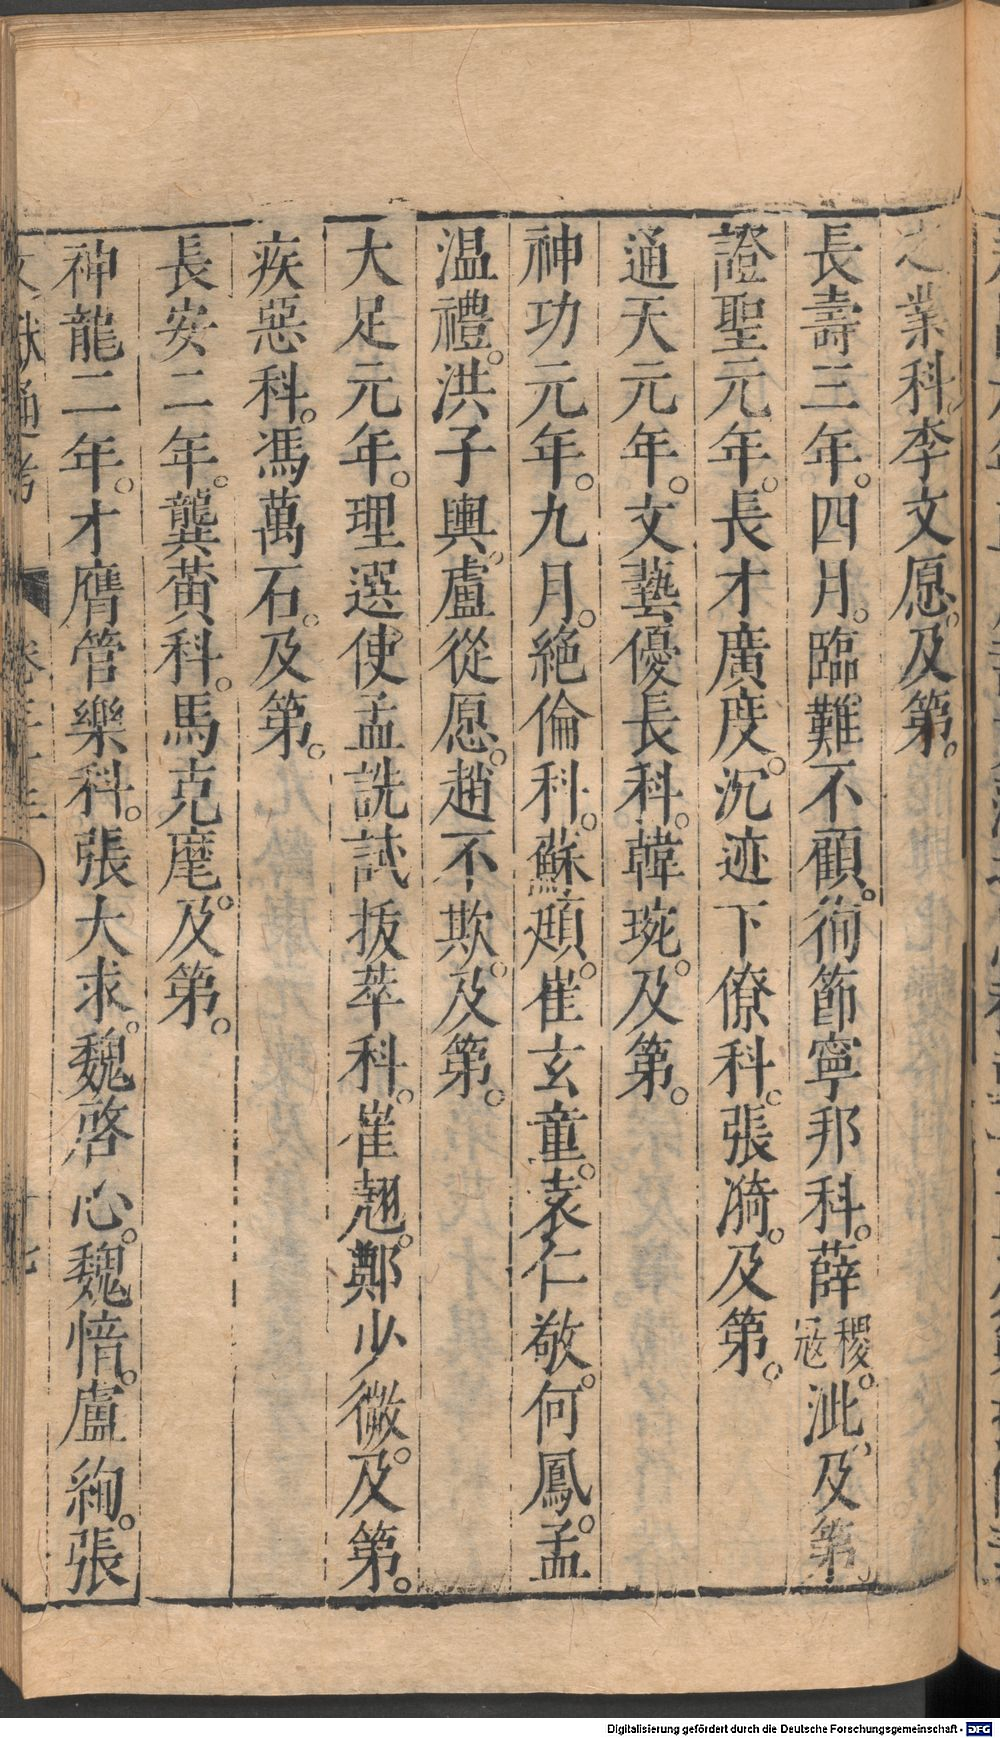 之業科。李文愿。及第。
長壽三年。四月。臨難不顧。徇節寧邦科。薛稷寇。泚。及第。
證聖元年。長才廣度。沉迹下僚科。張漪。及第。
通天元年。文藝優長科。韓琬。及第。
神功元年。九月。絶倫科。蘇頲。崔玄童。袁仁敬。何鳳。孟
温禮。洪子輿。盧從愿。趙不欺。及第。
大足元年。理選使孟詵試拔萃科。崔翹。鄭少微。及第。
疾惡科。馮萬石。及第。
長安二年。龔黄科。馬克麾。及第。
神龍二年。才膺管樂科。張大求。魏啓心。魏愔。盧絢。張
文獻通考
Digitalisierung gefördert durch die Deutsche Forschungsgemeinschaft - DFG